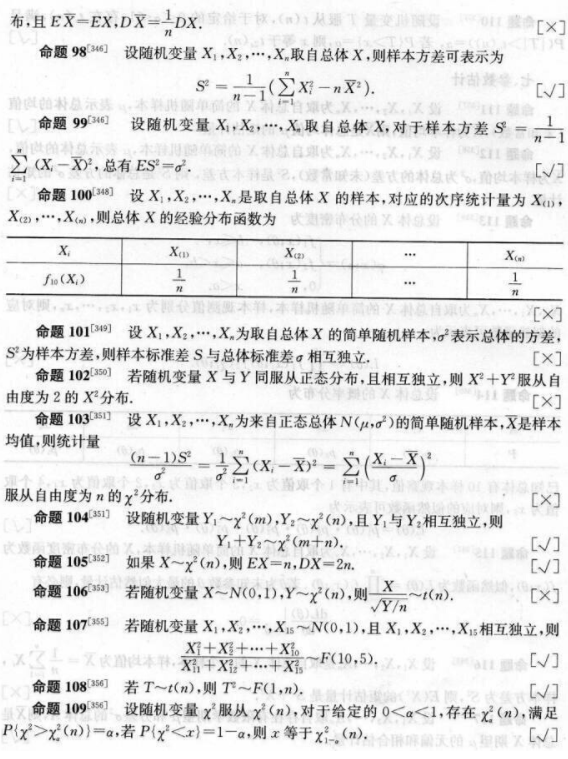 布,且 EX̄=EX,DX̄=1/n DX. [×]
命题 98[346] 设随机变量 X₁,X₂,⋯,Xₙ取自总体 X,则样本方差可表示为
S²=1/(n−1)(∑ᵢ₌₁ⁿXᵢ²−nX̄²). [√]
命题 99[346] 设随机变量 X₁,X₂,⋯,Xₙ取自总体 X,对于样本方差 S²=1/(n−1)
∑ᵢ₌₁ⁿ(Xᵢ−X̄)²,总有 ES²=σ². [√]
命题 100[348] 设 X₁,X₂,⋯,Xₙ是取自总体 X 的样本,对应的次序统计量为 X₍₁₎,
X₍₂₎,⋯,X₍ₙ₎,则总体 X 的经验分布函数为
Xᵢ X₍₁₎ X₍₂₎ ⋯ X₍ₙ₎
f₁₀(Xᵢ) 1/n 1/n ⋯ 1/n
[×]
命题 101[349] 设 X₁,X₂,⋯,Xₙ为取自总体 X 的简单随机样本,σ²表示总体的方差,
S²为样本方差,则样本标准差 S 与总体标准差 σ 相互独立. [×]
命题 102[350] 若随机变量 X 与 Y 同服从正态分布,且相互独立,则 X²+Y²服从自
由度为 2 的 X²分布. [×]
命题 103[351] 设 X₁,X₂,⋯,Xₙ为来自正态总体 N(μ,σ²)的简单随机样本,X̄是样本
均值,则统计量
(n−1)S²/²=1/σ²∑ᵢ₌₁ⁿ(Xᵢ−X̄)²=∑ᵢ₌₁ⁿ((Xᵢ−X̄)/σ)²
服从自由度为 n 的 χ²分布. [×]
命题 104[351] 设随机变量 Y₁~χ²(m),Y₂~χ²(n),且 Y₁与 Y₂相互独立,则
Y₁+Y₂~χ²(m+n). [√]
命题 105[352] 如果 X~χ²(n),则 EX=n,DX=2n. [√]
命题 106[353] 若随机变量 X~N(0,1),Y~χ²(n),则 X/√(Y/n)~t(n). [×]
命题 107[355] 若随机变量 X₁,X₂,⋯,X₁₅~N(0,1),且 X₁,X₂,⋯,X₁₅相互独立,则
(X₁²+X₂²+⋯+X₁₀²)/(X₁₁²+X₁₂²+⋯+X₁₅²)~F(10,5). [√]
命题 108[356] 若 T~t(n),则 T²~F(1,n). [√]
命题 109[356] 设随机变量 χ²服从 χ²(n),对于给定的 0<α<1,存在 χ²α(n),满足
P{χ²>χ²α(n)}=α,若 P{χ²<x}=1−α,则 x 等于 χ²₁₋α(n). [√]